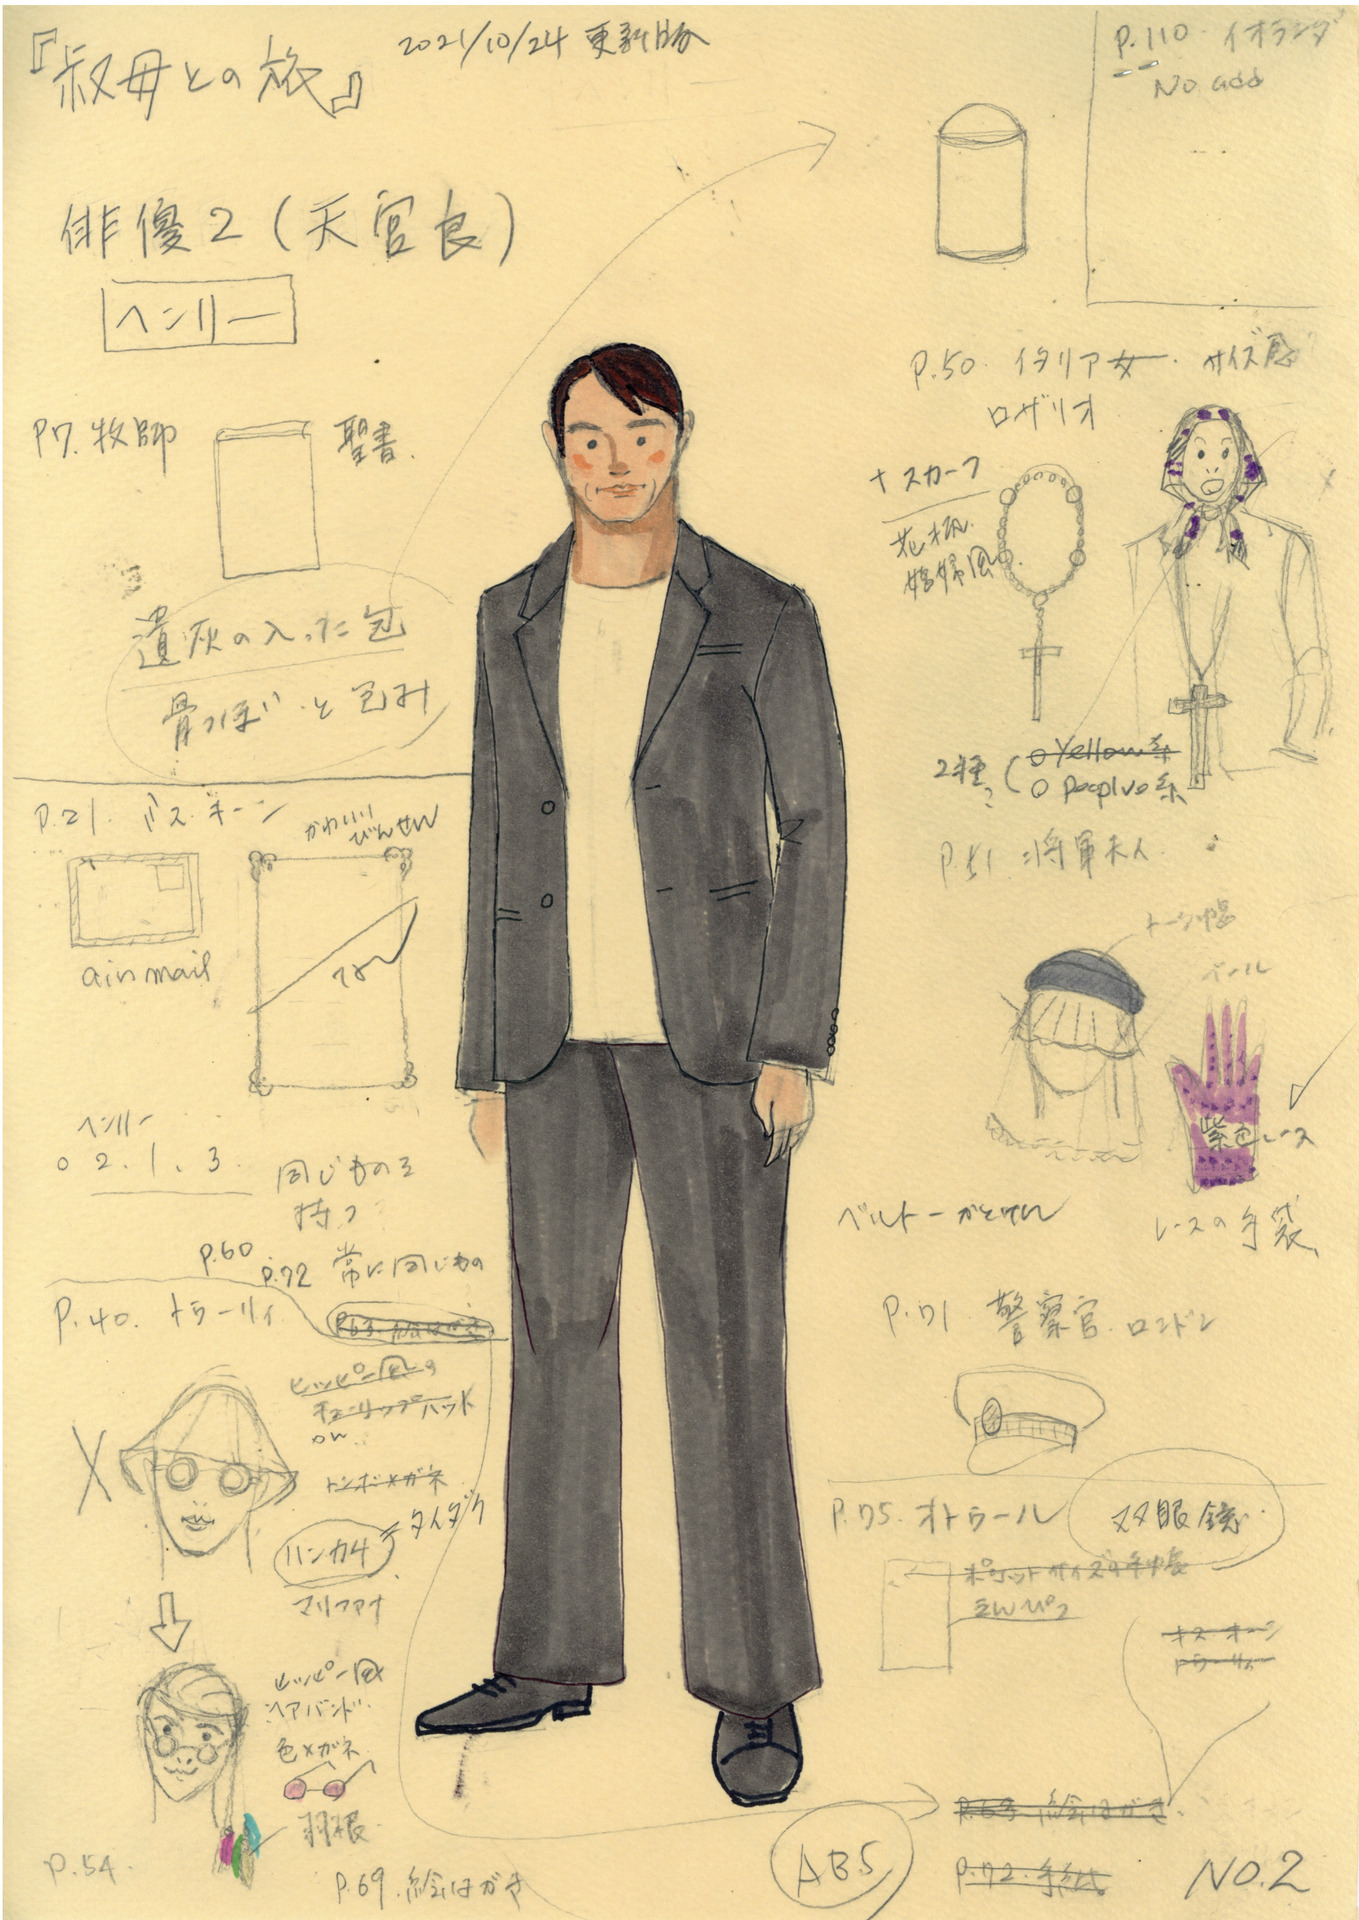 『叔母との旅』
2021/10/24 更新
俳優2(天宮良)
ヘンリー
P.110. イオランダ
No add
P7. 牧師
聖書.
遺灰の入った包
骨つぼ と包み
P.50. イタリア女. サイズ感
ロザリオ
+スカーフ
花柄.
娼婦風.
2種?
o Yellow系
o peoplve系
P.21. ミス.キーン
かわいい
びんせん
air mail
ヘンリー
o 2. 1. 3.
同じものを
持つ
P.60
P.72 常に同じもの
P.51. 将軍夫人
トーク帽
ベール
紫色レース
レースの手袋.
P.40. トゥーリィ
P.63. 絵はがき
ヒッピー風の
チューリップハット
on.
トンボメガネ
ハンカチ
=タイダイ
マリファナ
ヒッピー風
ヘアバンド.
色メガネ
羽根
P.54.
P.69. 絵はがき
P.71. 警察官. ロンドン
P.75. オトゥール
双眼鏡.
ポケットサイズの手帳
えんぴつ
P.63. 絵はがき.
P.72. 手紙
ABS
NO.2